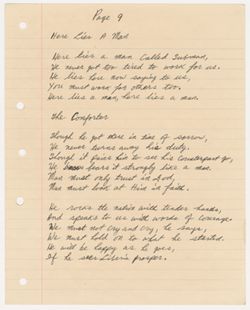 Page 9
Here Lies A Man
Here lies a man Called Tubman,
He never got too tired to work for us.
He lies here now saying to us,
You must work for others too.
Here lies a man, here lies a man.
The Comforter
Though he got here in time of sorrow,
He never turns away his duty.
Though it pains him to see his counterpart go,
He bears it strongly like a man.
Man must only trust in God,
Man must look at Him in faith.
He rocks the nation with tender hands,
And speaks to us with words of courage.
We must not cry and cry, he says,
We must hold on to what he started.
He will be happy as he goes,
If he sees Liberia prosper.